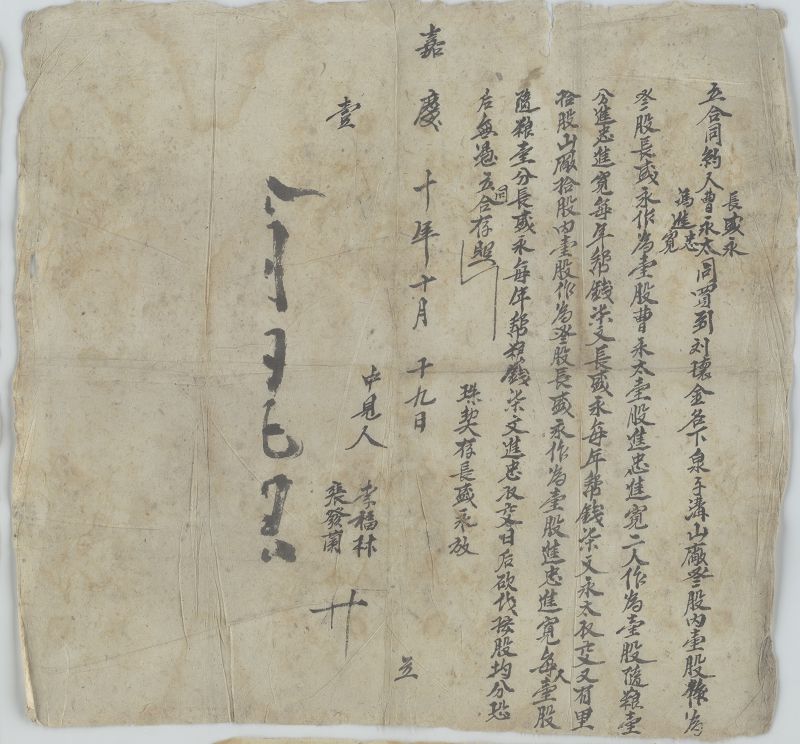 立合同約人曹永太馮進忠進寬長盛永同買到刘壞金名下泉子溝山廠叄股內壹股辦為
叄股長盛永作為壹股曹永太壹股進忠進寬二人作為壹股隨粮壹
分進忠進寬每年帮錢柒文長盛永每年帮錢柒文永太收交又有里
拾股山廠拾股內壹股作為叄股長盛永作為壹股進忠進寬每人壹股
隨粮壹分長盛永每年帮粮錢柒文進忠收交日后砍伐按股均分恐
后無憑立合同存照
珠契存長盛永放
嘉慶十年十月十九日 立
中見人 李福林 裴發蘭 十
壹